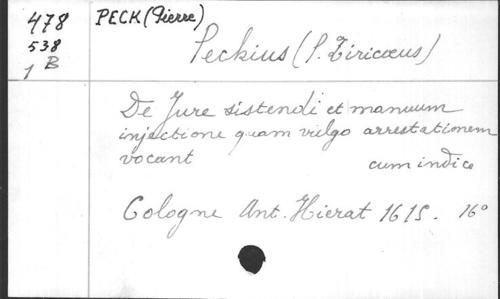 478
538
1 B
PECK (Pierre)
Peckius (P. Ziricæus)
De Jure sistendi et manuum
injectione quam vulgo arrestationem
vocant cum indice
Cologne Ant. Hierat 1615. 16°